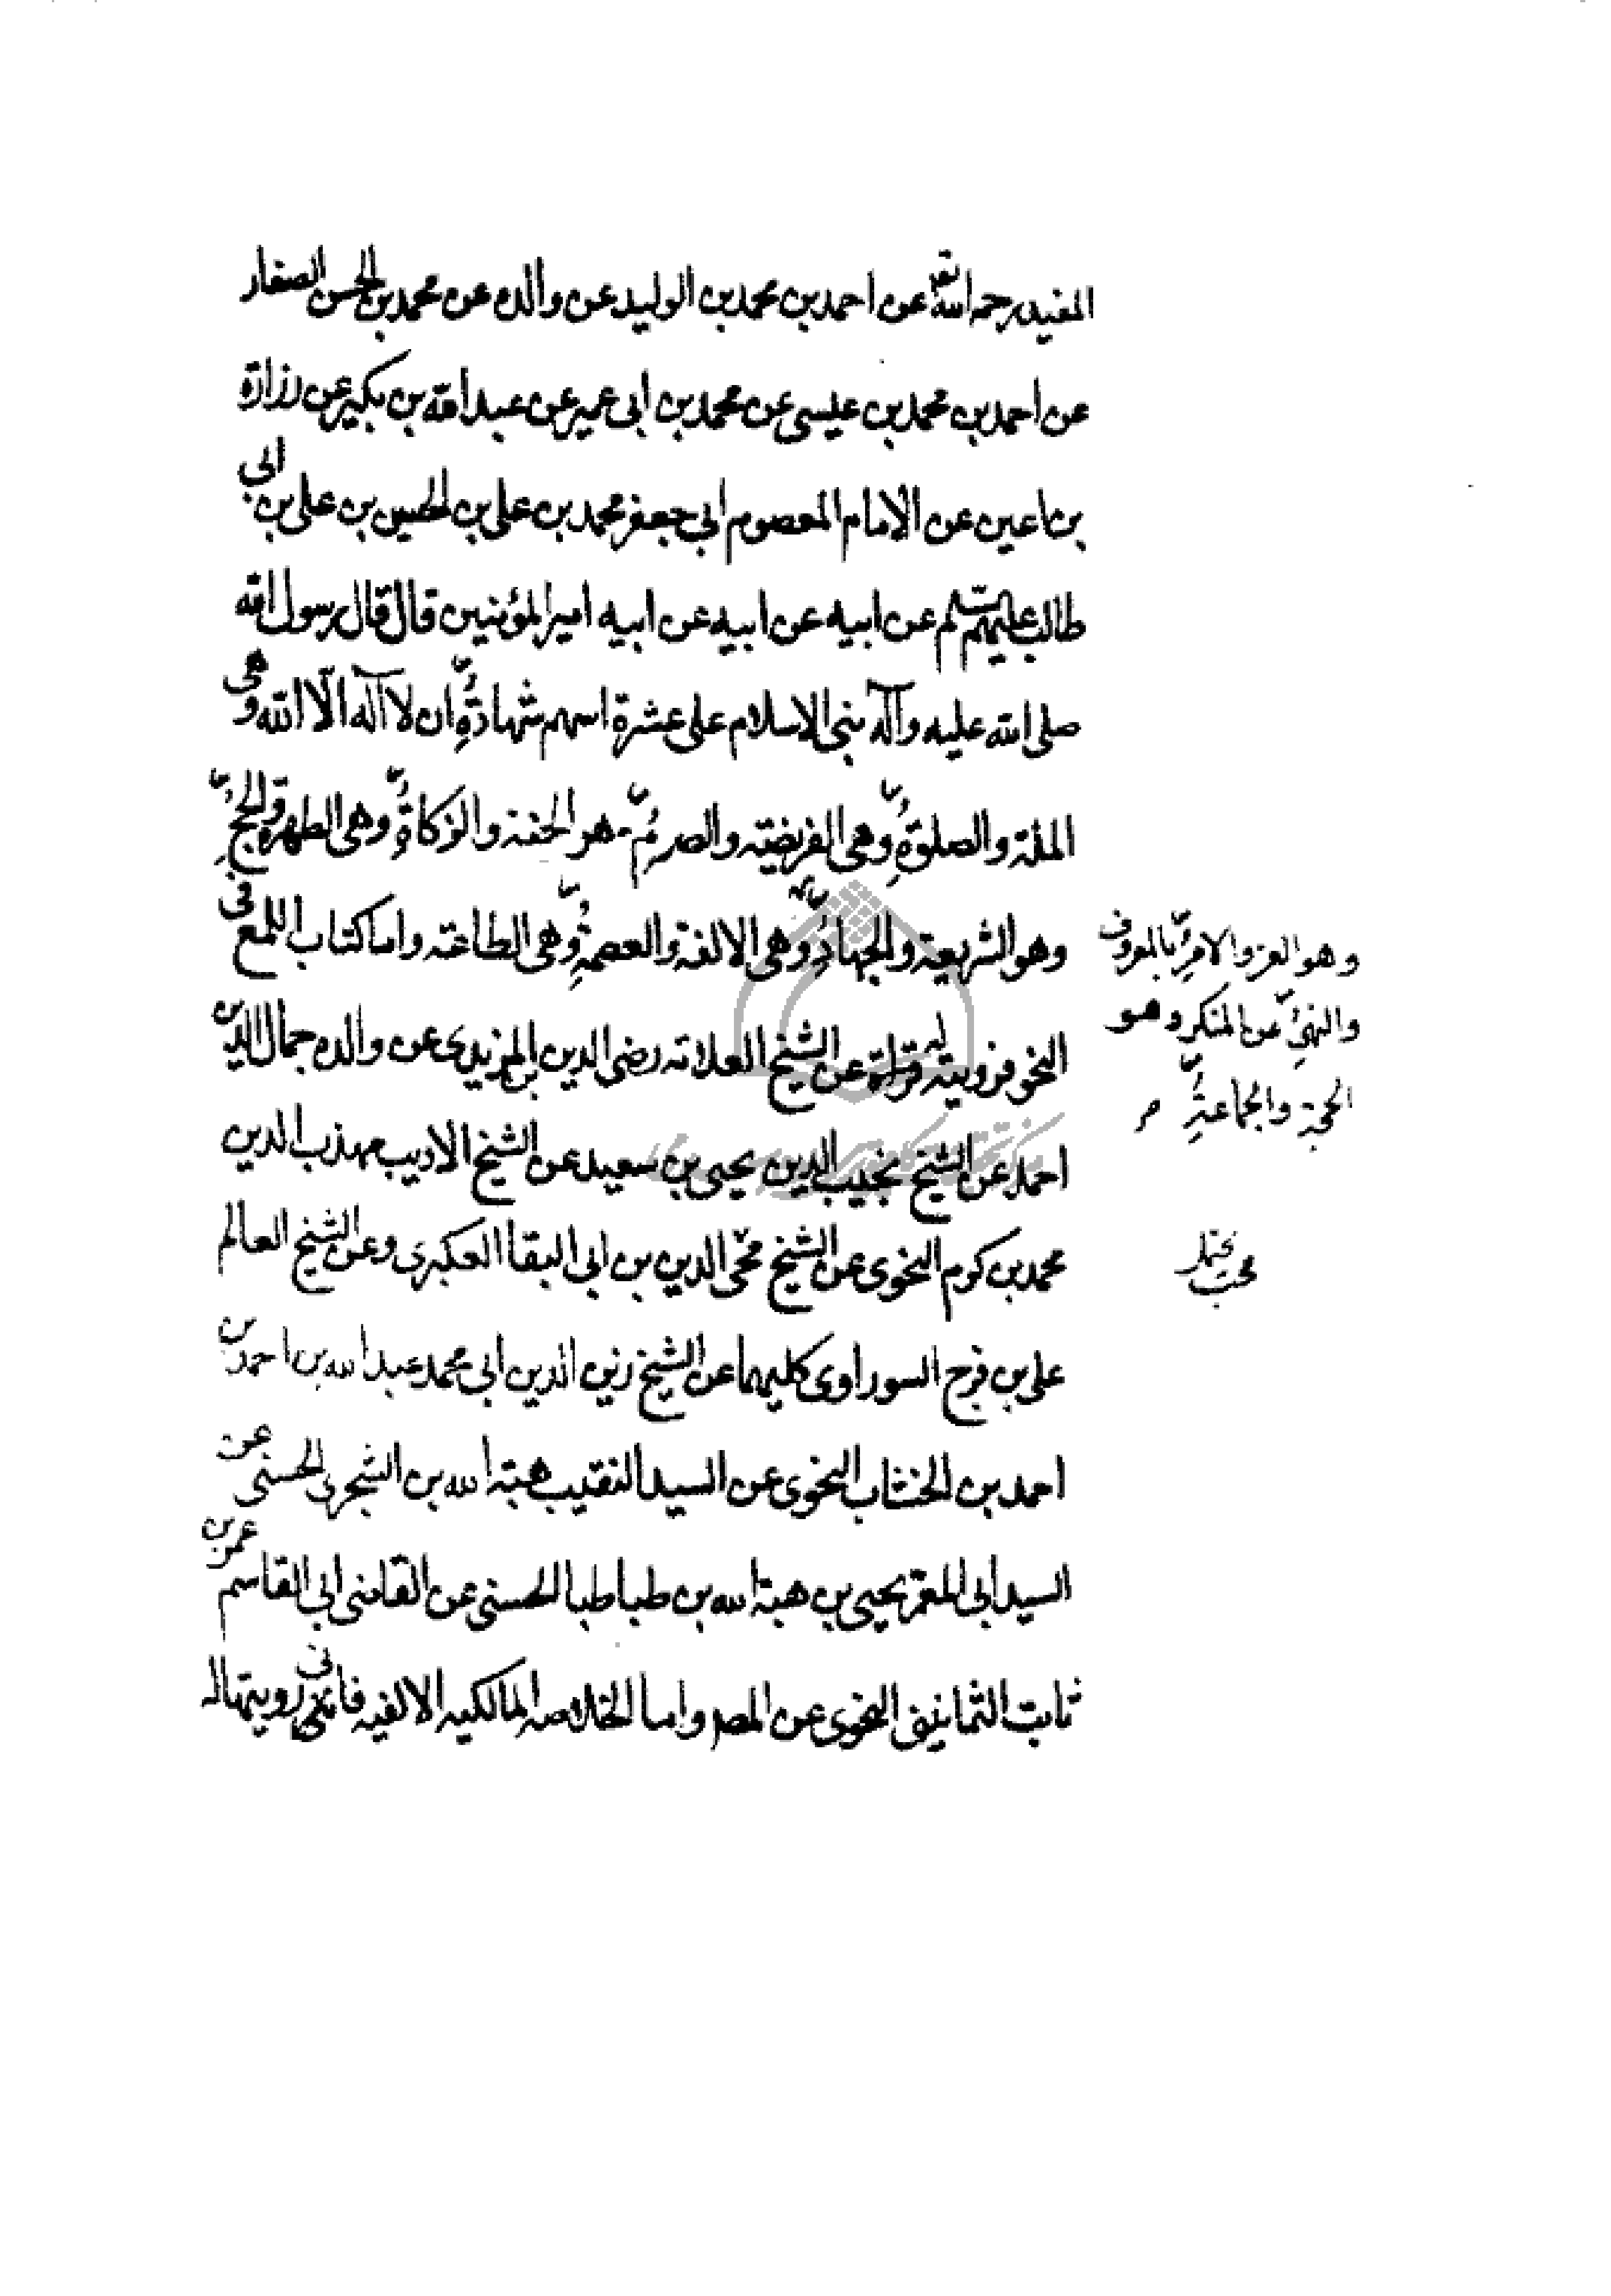 المفيد رحمه الله تع عن احمد بن محمد بن الوليد عن والده عن محمد بن الحسن الصفار
عن احمد بن محمد بن عيسى عن محمد بن ابى عمير عن عبد الله بن بكير عن زرارة
بن اعين عن الامام المعصوم ابى جعفر محمد بن على بن الحسين بن على بن ابى
طالب عليهم عن ابيه عن ابيه عن ابيه امير المؤمنين قال قال رسول الله
صلى الله عليه وآله بنى الاسلام على عشرة اسهم شهادة ان لا آله الّا الله وهى
الملة والصلوة وهى الفريضة والصوم هو الجنة والزكاة وهى الطهرة والحج
وهو الشريعة والجهاد وهو العز والامر بالمعروف
والنهى عن المنكر وهو
الحجة والجماعة
وهى الالفة والعصمة وهى الطاعة واما كتاب اللمع فى
النحو فرويته له قراءة عن الشيخ العلامة رضى الدين بن المزيدى عن والده جمال الدين
احمد عن الشيخ نجيب الدين يحيى بن سعيد عن الشيخ الاديب مهذب الدين
محمد بن كرم النحوى عن الشيخ محى الدين بن ابى البقا العكبرى وعن الشيخ العالم
على بن فرج السوراوى كليهما عن الشيخ زين الدين ابى محمد عبد الله بن احمد بن
احمد بن الخشاب النحوى عن السيد النقيب هبة الله بن الشجرى الحسنى عن
السيد ابى المعمر يحيى بن هبة الله بن طباطبا الحسنى عن القاضى ابى القاسم عمر بن
ثابت الثمانينى النحوى عن المصر واما الخلاصه المالكيه الالفيه فانى رويتها له